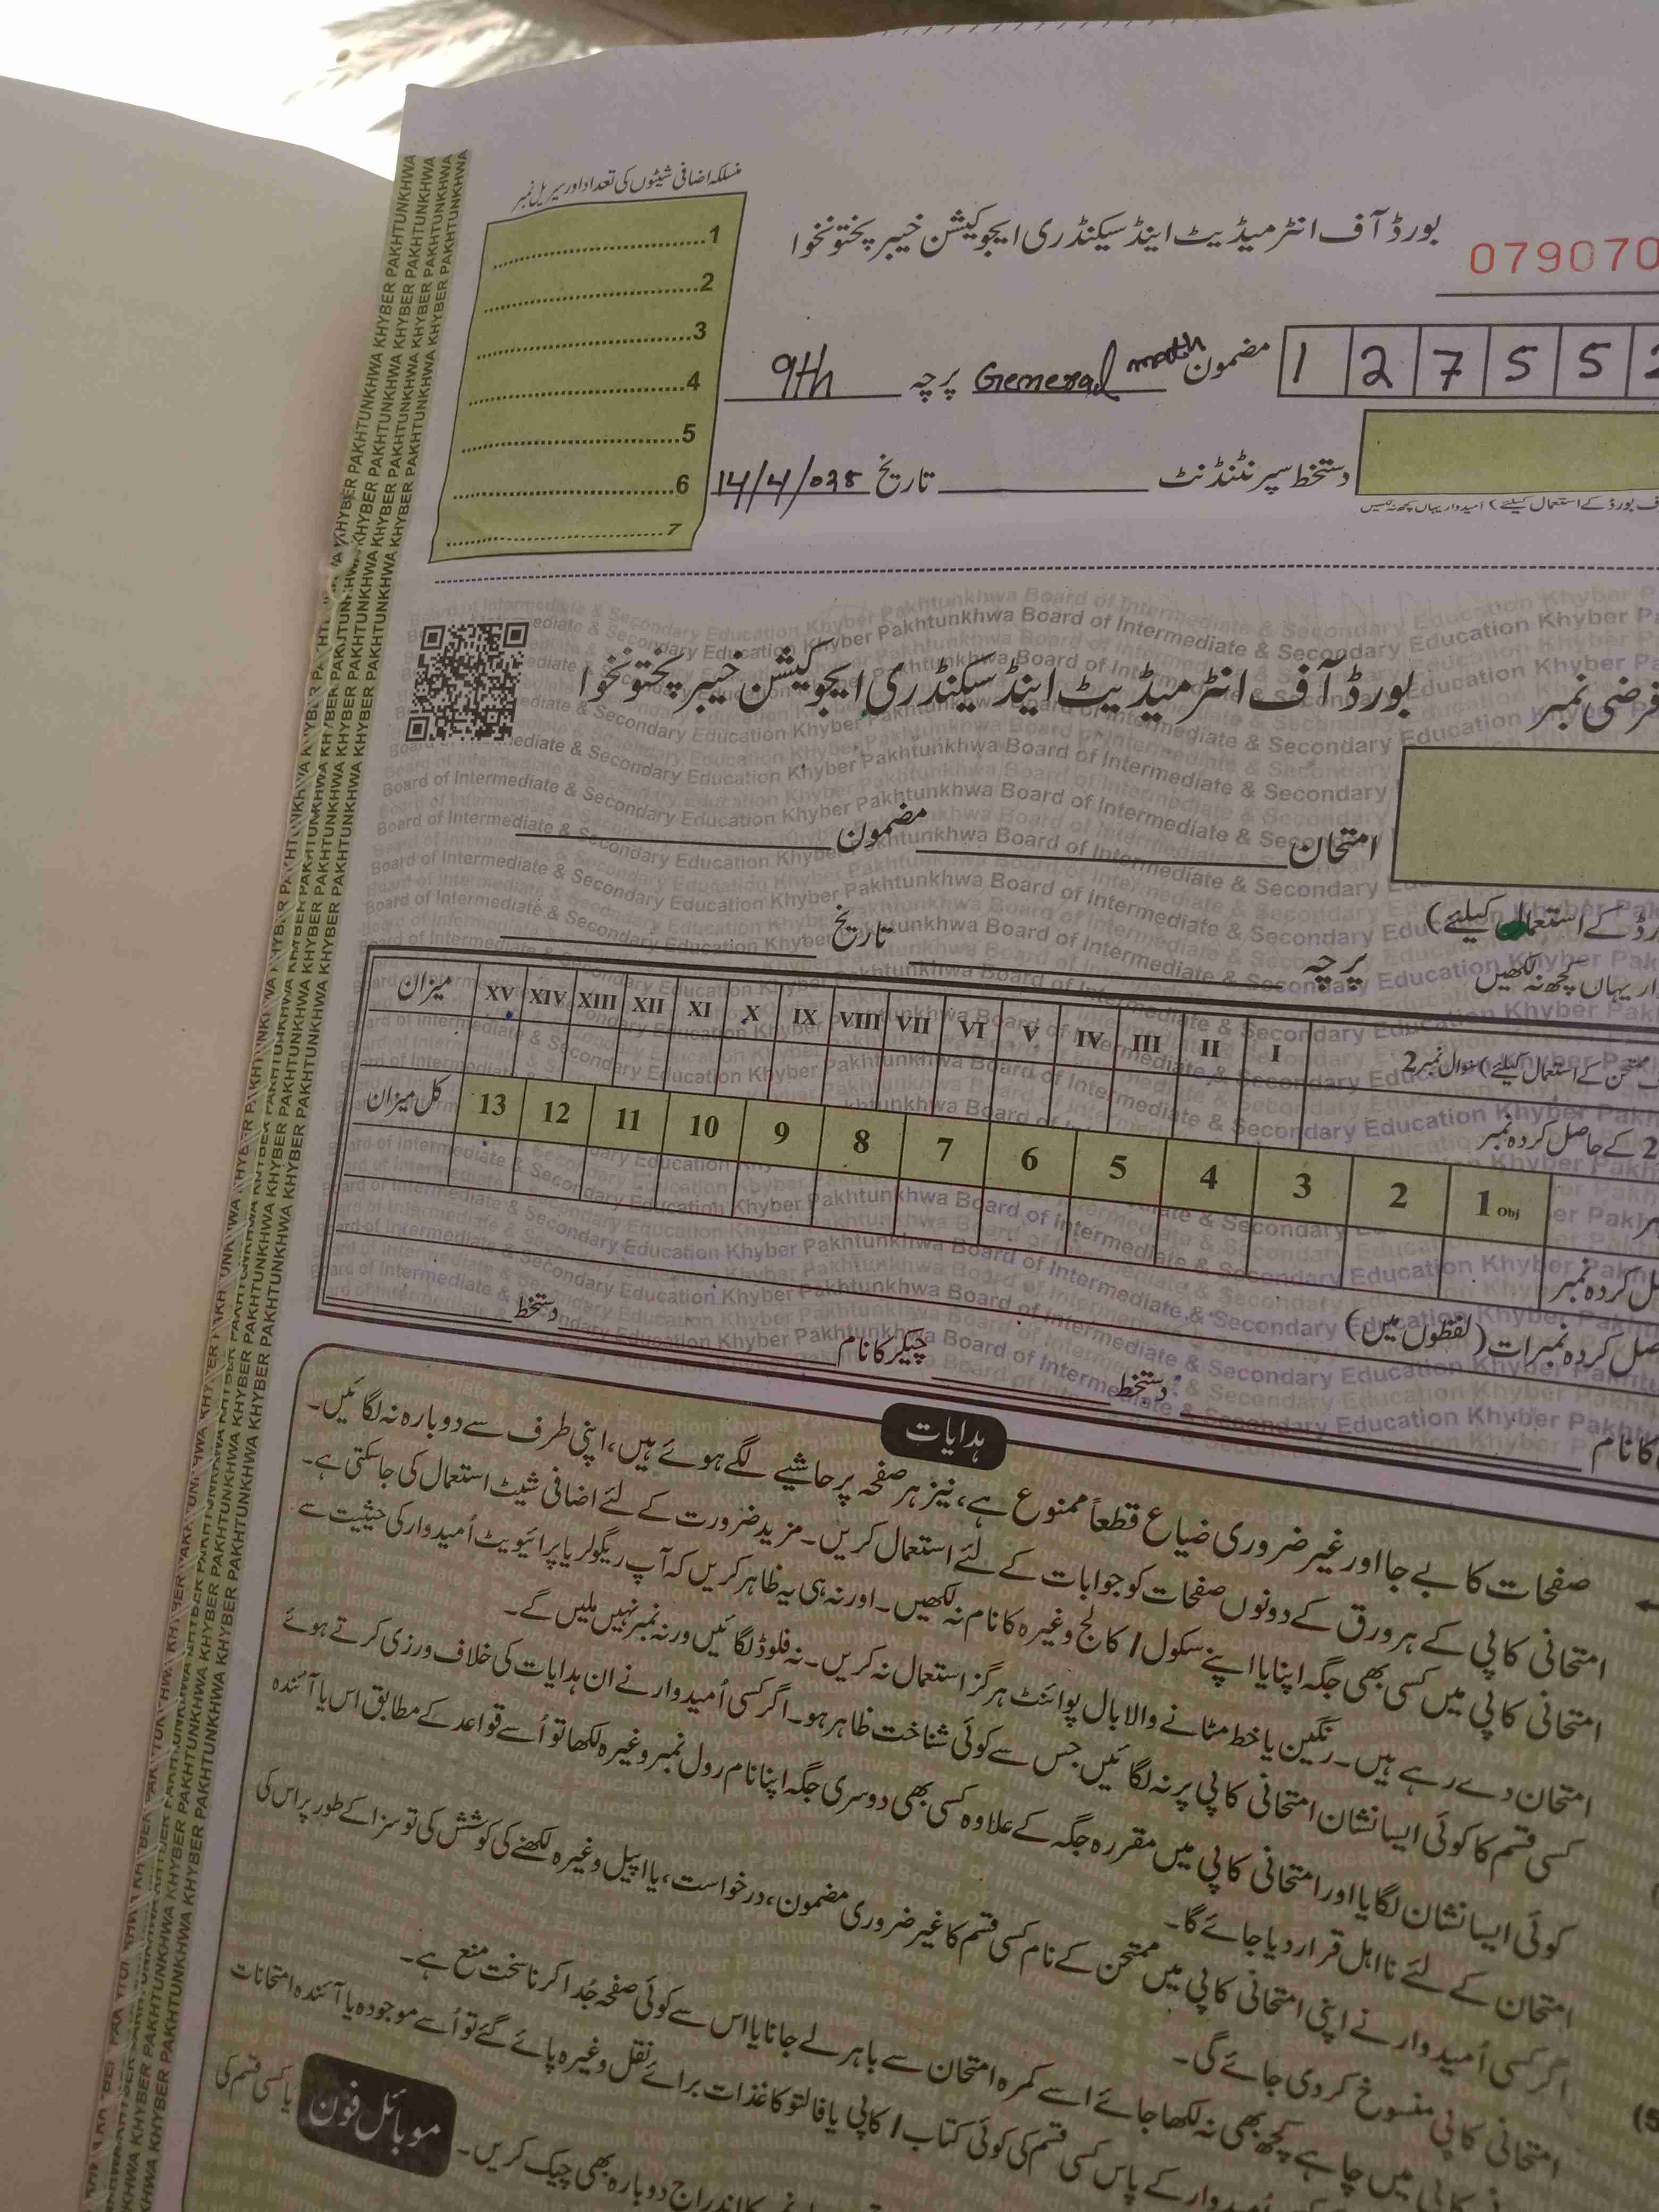 منسلکہ اضافی شیٹوں کی تعداد اور سیریل نمبر
1
2
3
4
5
6
7
بورڈ آف انٹرمیڈیٹ اینڈ سیکنڈری ایجوکیشن خیبر پختونخوا
079070
1 2 7 5 5
مضمون General math پرچہ 9th
دستخط سپرنٹنڈنٹ تاریخ 14/4/025
بورڈ کے استعمال کیلئے) امیدوار یہاں کچھ نہ لکھیں
فرضی نمبر
بورڈ آف انٹرمیڈیٹ اینڈ سیکنڈری ایجوکیشن خیبر پختونخوا
امتحان مضمون
کے استعمال کیلئے)
یہاں کچھ نہ لکھیں
پرچہ تاریخ
کے استعمال کیلئے) سوال نمبر 2 I II III IV V VI VII VIII IX X XI XII XIII XIV XV میزان
2 کے حاصل کردہ نمبر
1 Obj 2 3 4 5 6 7 8 9 10 11 12 13 کل میزان
کردہ نمبر
کردہ نمبرات (لفظوں میں)
کا نام دستخط چیکر کا نام دستخط
ہدایات
صفحات کا بے جا اور غیر ضروری ضیاع قطعاً ممنوع ہے، نیز ہر صفحہ پر حاشیے لگے ہوئے ہیں، اپنی طرف سے دوبارہ نہ لگائیں۔
امتحانی کاپی کے ہر ورق کے دونوں صفحات کو جوابات کے لئے استعمال کریں۔ مزید ضرورت کے لئے اضافی شیٹ استعمال کی جاسکتی ہے۔
امتحانی کاپی میں کسی بھی جگہ اپنا یا اپنے سکول / کالج وغیرہ کا نام نہ لکھیں۔ اور نہ ہی یہ ظاہر کریں کہ آپ ریگولر یا پرائیویٹ اُمیدوار کی حیثیت سے
امتحان دے رہے ہیں۔ رنگین یا خط مٹانے والا بال پوائنٹ ہرگز استعمال نہ کریں۔ نہ فلوڈ لگائیں ورنہ نمبر نہیں ملیں گے۔
کسی قسم کا کوئی ایسا نشان امتحانی کاپی پر نہ لگائیں جس سے کوئی شناخت ظاہر ہو۔ اگر کسی اُمیدوار نے ان ہدایات کی خلاف ورزی کرتے ہوئے
کوئی ایسا نشان لگایا اور امتحانی کاپی میں مقررہ جگہ کے علاوہ کسی بھی دوسری جگہ اپنا نام رول نمبر وغیرہ لکھا تو اُسے قواعد کے مطابق اس یا آئندہ
امتحان کے لئے نااہل قرار دیا جائے گا۔
اگر کسی اُمیدوار نے اپنی امتحانی کاپی میں ممتحن کے نام کسی قسم کا غیر ضروری مضمون، درخواست، یا اپیل وغیرہ لکھنے کی کوشش کی تو سزا کے طور پر اس کی
امتحانی کاپی منسوخ کر دی جائے گی۔
میں چاہے کچھ بھی نہ لکھا جائے اسے کمرہ امتحان سے باہر لے جانا یا اس سے کوئی صفحہ جُدا کرنا سخت منع ہے۔
کے پاس کسی قسم کی کوئی کتاب / کاپی یا فالتو کاغذات برائے نقل وغیرہ پائے گئے تو اُسے موجودہ یا آئندہ امتحانات
کا اندراج دوبارہ بھی چیک کریں۔ موبائل فون یا کسی قسم کی
KHYBER PAKHTUNKHWA
Board of Intermediate & Secondary Education Khyber Pakhtunkhwa